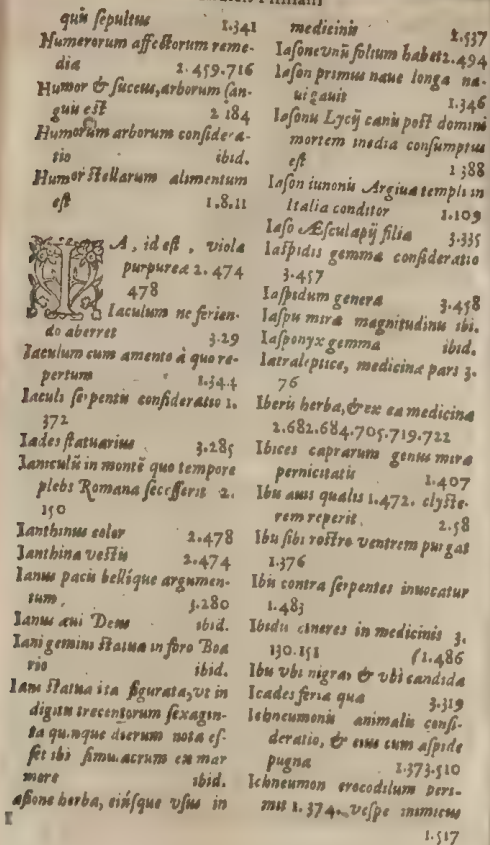 quis sepultus 1.341
Humerorum affectorum reme-
dia 2.459.716
Humor & succus, arborum san-
guis est 2 184
Humorum arborum considera-
tio ibid.
Humor stellarum alimentum
est 1.8.11
IA, id est, viola
purpurea 2.474
478
Iaculum ne ferien-
do aberret 3.29
Iaculum cum amento à quo re-
pertum 1.344
Iaculi serpentis consideratio 1.
372
Iades statuarius 3.285
Ianiculũ in montẽ quo tempore
plebs Romana secesserit 2.
150
Ianthinus color 2.478
Ianthina vestis 2.474
Ianus pacis bellíque argumen-
tum, 3.280
Ianus æui Deus ibid.
Iani gemini statua in foro Boa
rio ibid.
Iani statua ita figurata, vt in
digitis trecentorum sexagin-
ta quinque dierum nota es-
set ibi simulacrum ex mar
more ibid.
asione herba, eiúsque vsus in
medicinis 2.537
Iasone vnũ folium habet 2.494
Iason primus naue longa na-
uigauit 1.346
Iasonis Lycij canis post domini
mortem inedia consumptus
est 1 388
Iason iunonis Argiua templi in
Italia conditor 1.109
Iaso Æsculapij filia 3.335
Iaspidis gemma consideratio
3.457
Iaspidum genera 3.458
Iaspis mira magnitudinis ibi.
Iasponyx gemma ibid.
Iatraleptice, medicina pars 3.
76
Iberis herba, & ex ea medicina
2.682.684.705.719.722
Ibices caprarum genus mira
pernicitatis 1.407
Ibis auis qualis 1.472. clyste-
rem reperit, 2.58
Ibis sibi rostro ventrem purgat
1.376
Ibis contra serpentes inuocatur
1.483
Ibidis cineres in medicinis 3.
130.151 (1.486
Ibis vbi nigra, & vbi candida
Icades feria qua 3.319
Ichneumonis animalis consi-
deratio, & eius cum aspide
pugna 1.373.510
Ichneumon crocodilum peri-
mit 1.374. vespe inimicus
1.517